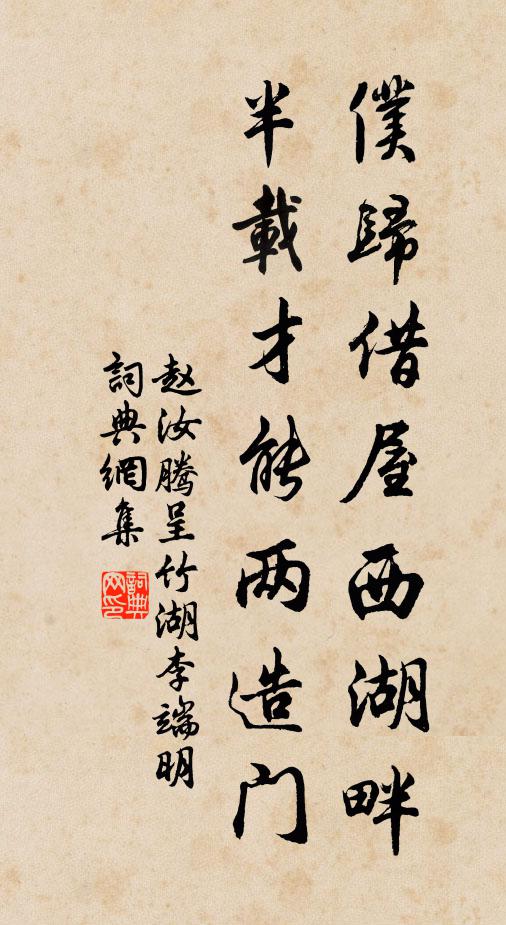 僕歸借屋西湖畔
半載才能两造门
赵汝騰呈竹湖李端明
詞典網集
詞典
网印